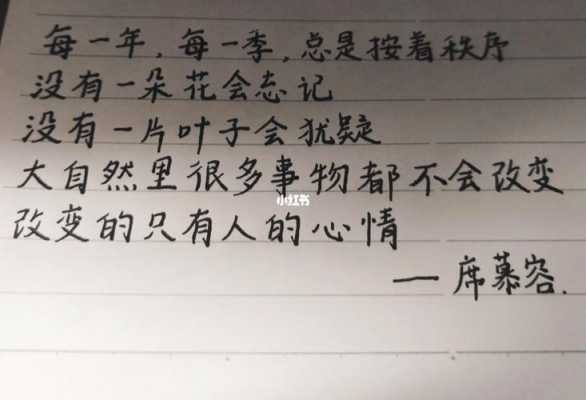 每一年，每一季，总是按着秩序
没有一朵花会忘记
没有一片叶子会犹疑
大自然里很多事物都不会改变
小红书
改变的只有人的心情
— 席慕容.